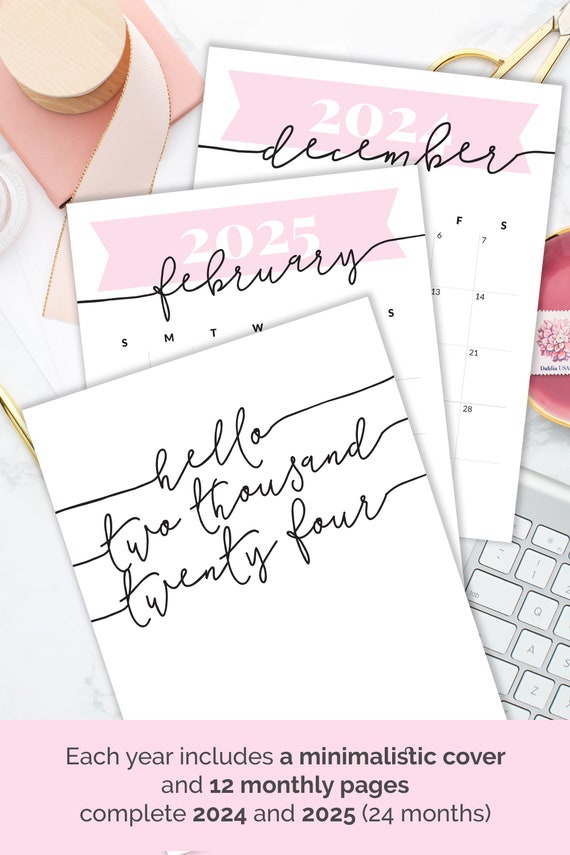 2024
december
F S
6 7
13 14
21
28
2025
february
S M T W S
hello
two thousand
twenty four
Dahlia USA
Each year includes a minimalistic cover
and 12 monthly pages
complete 2024 and 2025 (24 months)